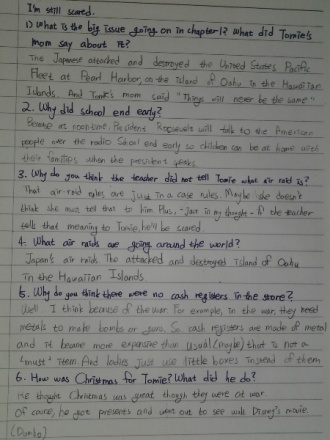 I'm still scared.
1) What is the big issue going on in chapter 1? What did Tomie's
Mom say about it?
The Japanese attacked and destroyed the United States Pacific
Fleet at Pearl Harbor, on the island of Oahu in the Hawaiian
Islands. And Tomie's mom said "Things will never be the same."
2. Why did school end early?
Because at noontime, President Roosevelt will talk to the American
people over the radio School end early so children can be at home with
their families when the president speaks.
3. Why do you think the teacher did not tell Tomie what air raid is?
That air-raid rules, are just in a case rules. Maybe she doesn't
think she must tell that to him Plus, - Just in my thought - if the teacher
talk that meaning to Tomie, he'll be scared.
4. What air raids are going around the world?
Japan's air raids. The attacked and destroyed island of Oahu
in the Hawaiian Islands.
5. Why do you think there were no cash registers in the store?
Well.. I think because of the war. For example, in the war, they need
metals to make bombs or guns. So cash registers are made of metal
and it became more expensive than usual (maybe) that is not a
"must" item And ladies just use little boxes instead of them
6. How was Christmas for Tomie? What did he do?
He thought Christmas was great though they were at war.
Of cause, he got presents and went out to see walt Disney's movie.
(Dumbo)